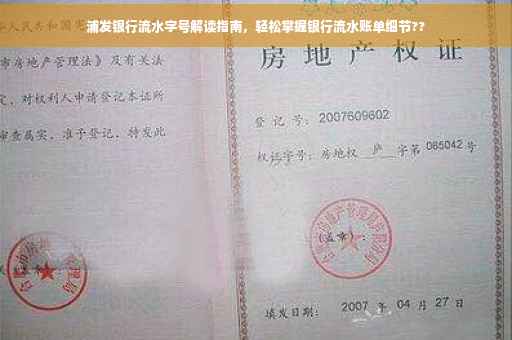 浦发银行流水字号解读指南，轻松掌握银行流水账单细节??
人民共和国宪
市房地产管理法》及有关法
定，对权利人申请登记本证所
审查属实，准予登记，特发此
房地产权证
登记号：2007609602
权证字号：房地权 庐 字第 065042 号
(盖章)：
填发日期： 2007 年 04 月 27 日